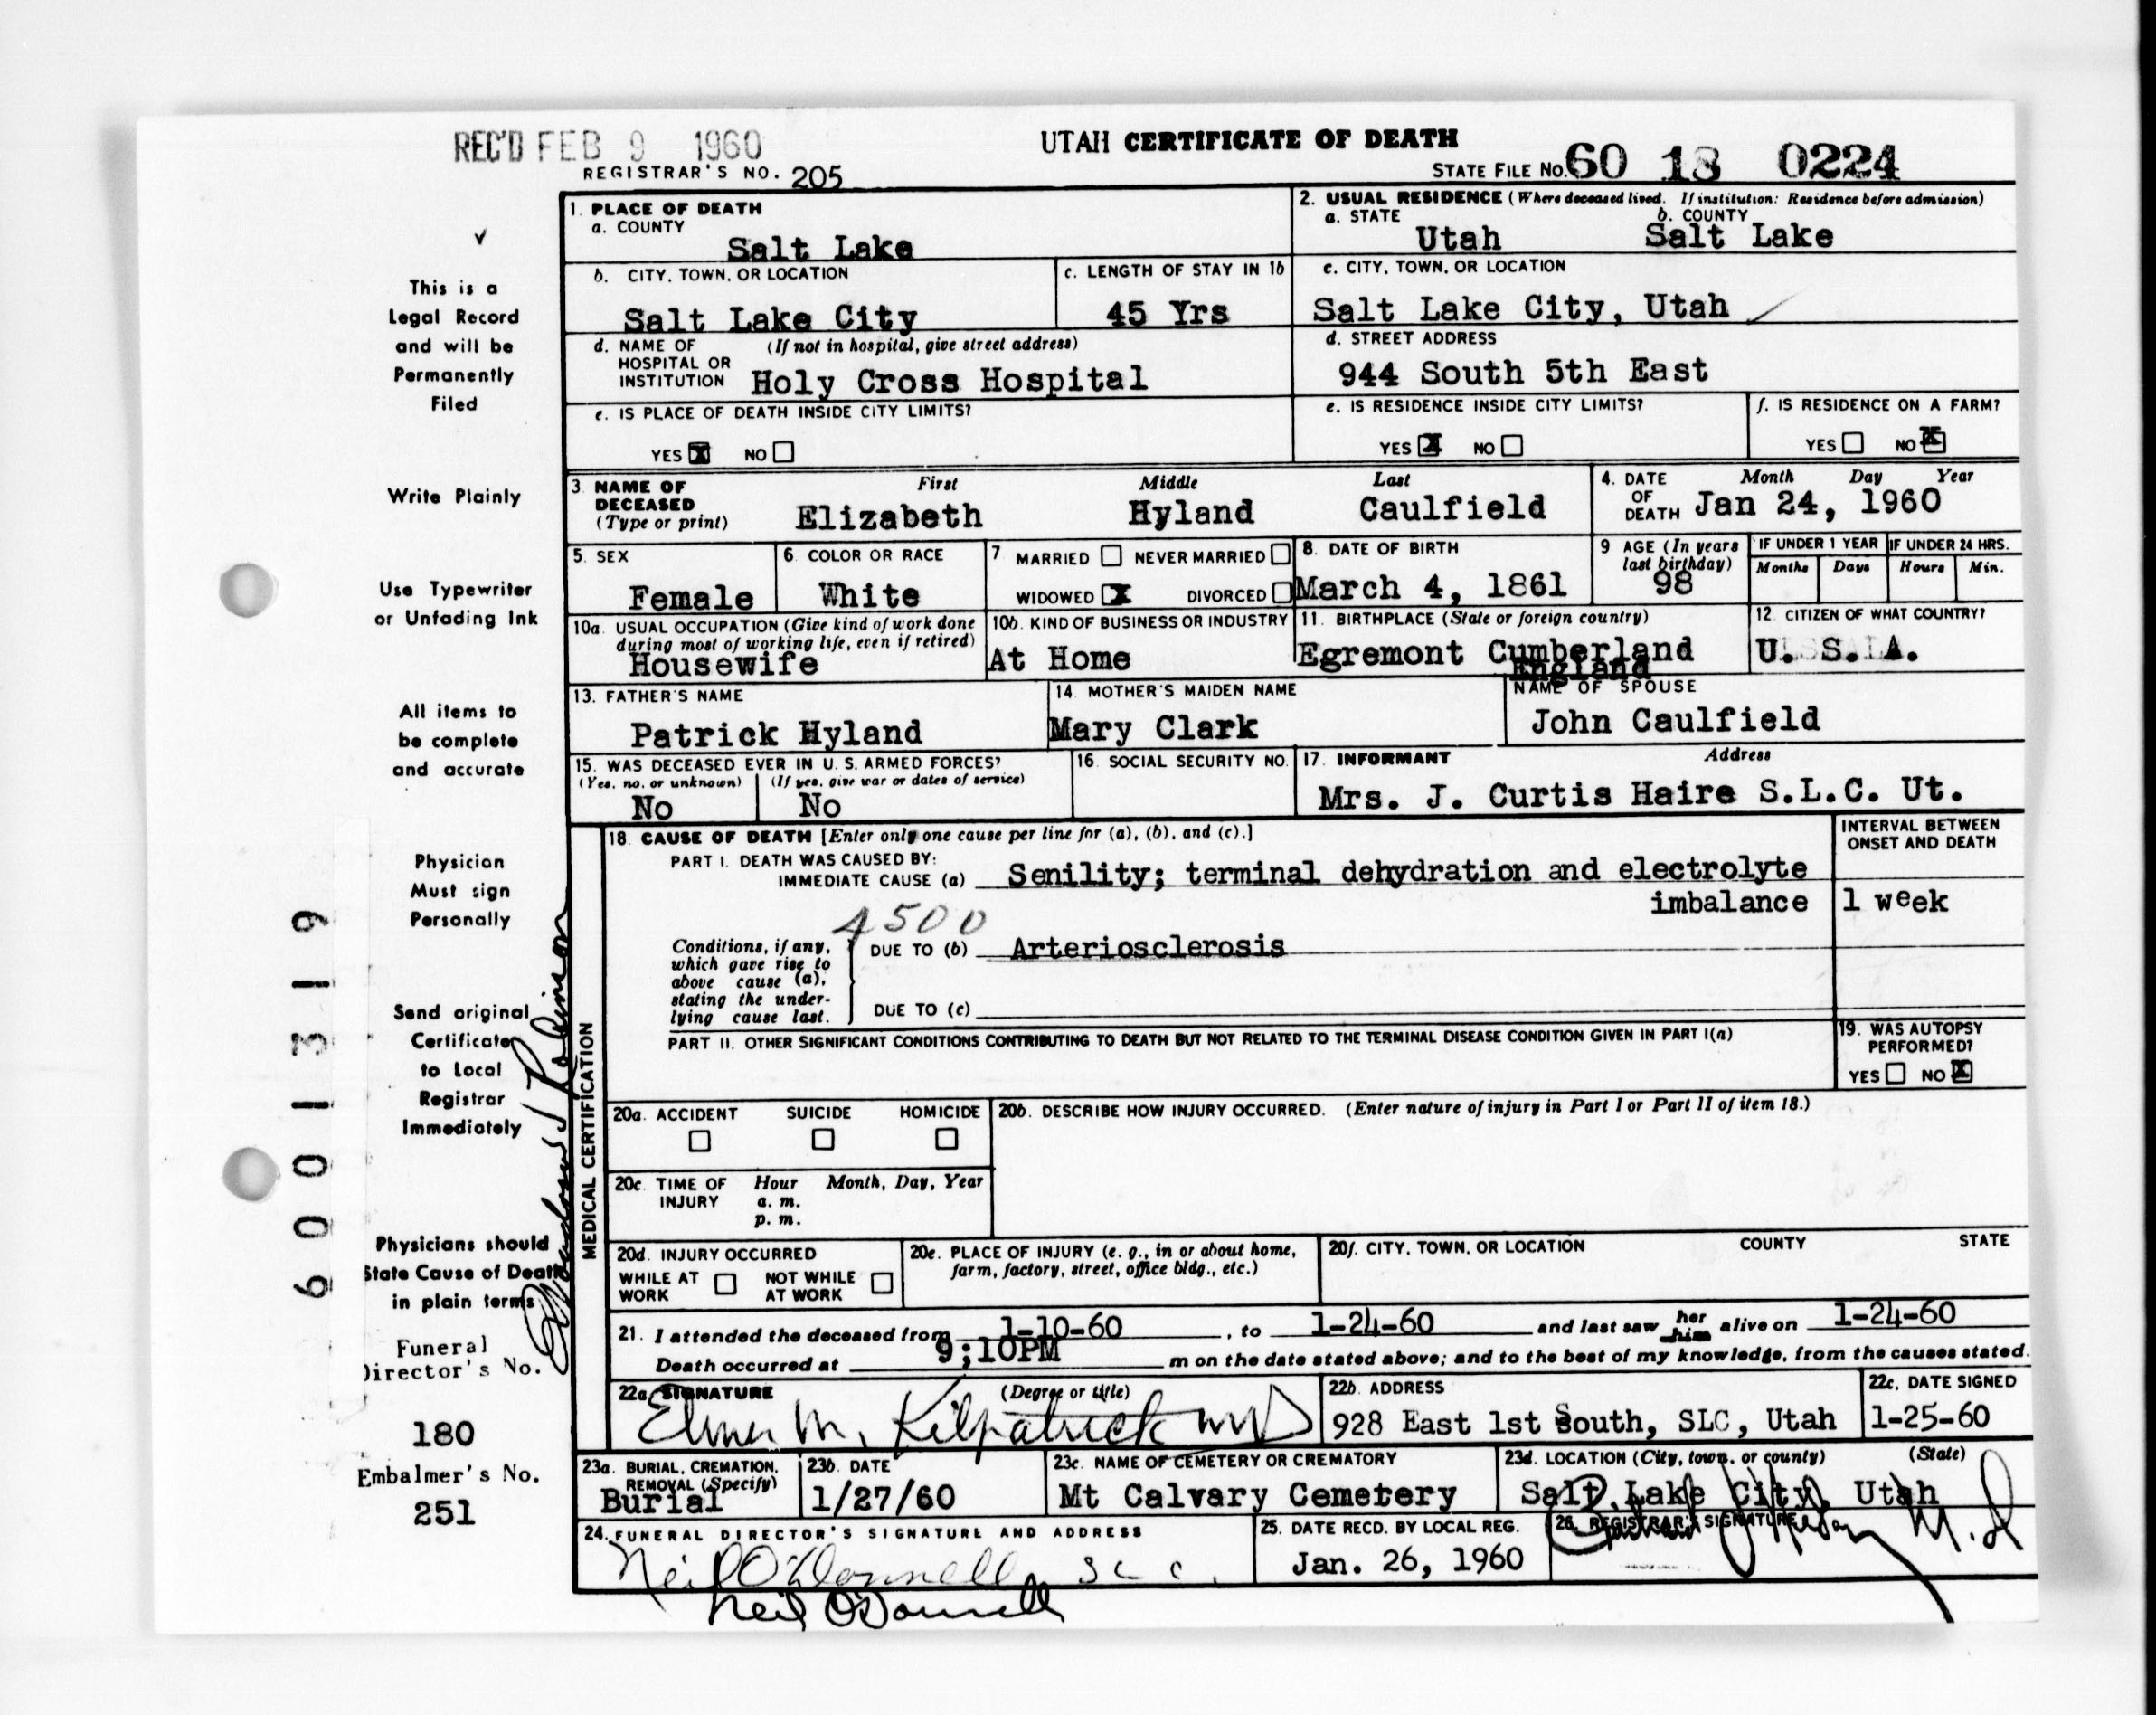 REC'D FEB 9 1960
UTAH CERTIFICATE OF DEATH
REGISTRAR'S NO. 205
STATE FILE NO. 60 18 0224
1. PLACE OF DEATH
a. COUNTY
Salt Lake
2. USUAL RESIDENCE (Where deceased lived. If institution: Residence before admission)
a. STATE b. COUNTY
Utah Salt Lake
b. CITY, TOWN, OR LOCATION
Salt Lake City
c. LENGTH OF STAY IN 1b
45 Yrs
c. CITY, TOWN, OR LOCATION
Salt Lake City, Utah
d. NAME OF HOSPITAL OR INSTITUTION (If not in hospital, give street address)
Holy Cross Hospital
d. STREET ADDRESS
944 South 5th East
e. IS PLACE OF DEATH INSIDE CITY LIMITS?
YES X NO
e. IS RESIDENCE INSIDE CITY LIMITS?
YES X NO
f. IS RESIDENCE ON A FARM?
YES NO X
3. NAME OF DECEASED (Type or print)
First Middle Last
Elizabeth Hyland Caulfield
4. DATE OF DEATH Month Day Year
Jan 24, 1960
5. SEX
Female
6. COLOR OR RACE
White
7. MARRIED NEVER MARRIED
WIDOWED X DIVORCED
8. DATE OF BIRTH
March 4, 1861
9 AGE (In years last birthday)
98
IF UNDER 1 YEAR
Months Days
IF UNDER 24 HRS.
Hours Min.
10a. USUAL OCCUPATION (Give kind of work done during most of working life, even if retired)
Housewife
10b. KIND OF BUSINESS OR INDUSTRY
At Home
11. BIRTHPLACE (State or foreign country)
Egremont Cumberland
England
12. CITIZEN OF WHAT COUNTRY?
U. S. A.
13. FATHER'S NAME
Patrick Hyland
14. MOTHER'S MAIDEN NAME
Mary Clark
NAME OF SPOUSE
John Caulfield
15. WAS DECEASED EVER IN U. S. ARMED FORCES?
(Yes, no, or unknown) (If yes, give war or dates of service)
No No
16. SOCIAL SECURITY NO.
17. INFORMANT Address
Mrs. J. Curtis Haire S.L.C. Ut.
MEDICAL CERTIFICATION
18. CAUSE OF DEATH [Enter only one cause per line for (a), (b), and (c).]
INTERVAL BETWEEN ONSET AND DEATH
PART I. DEATH WAS CAUSED BY:
IMMEDIATE CAUSE (a) Senility; terminal dehydration and electrolyte
imbalance 1 week
4500
Conditions, if any, which gave rise to above cause (a), stating the underlying cause last.
DUE TO (b) Arteriosclerosis
DUE TO (c)
PART II. OTHER SIGNIFICANT CONDITIONS CONTRIBUTING TO DEATH BUT NOT RELATED TO THE TERMINAL DISEASE CONDITION GIVEN IN PART I(a)
19. WAS AUTOPSY PERFORMED?
YES NO X
20a. ACCIDENT SUICIDE HOMICIDE
20b. DESCRIBE HOW INJURY OCCURRED. (Enter nature of injury in Part I or Part II of item 18.)
20c. TIME OF INJURY Hour Month, Day, Year
a. m.
p. m.
20d. INJURY OCCURRED
WHILE AT WORK NOT WHILE AT WORK
20e. PLACE OF INJURY (e. g., in or about home, farm, factory, street, office bldg., etc.)
20f. CITY, TOWN, OR LOCATION COUNTY STATE
21. I attended the deceased from 1-10-60, to 1-24-60 and last saw her him alive on 1-24-60
Death occurred at 9;10PM m on the date stated above; and to the best of my knowledge, from the causes stated.
22a. SIGNATURE (Degree or title)
Elmer M. Kilpatrick MD
22b. ADDRESS
928 East 1st South, SLC, Utah
22c. DATE SIGNED
1-25-60
23a. BURIAL, CREMATION, REMOVAL (Specify)
Burial
23b. DATE
1/27/60
23c. NAME OF CEMETERY OR CREMATORY
Mt Calvary Cemetery
23d. LOCATION (City, town, or county) (State)
Salt Lake City, Utah
24. FUNERAL DIRECTOR'S SIGNATURE AND ADDRESS
Neil O'Donnell, SLC.
Neil O'Donnell
25. DATE RECD. BY LOCAL REG.
Jan. 26, 1960
26. REGISTRAR'S SIGNATURE
M.D
This is a
Legal Record
and will be
Permanently
Filed
Write Plainly
Use Typewriter
or Unfading Ink
All items to
be complete
and accurate
Physician
Must sign
Personally
Send original
Certificate
to Local
Registrar
Immediately
Physicians should
State Cause of Death
in plain terms
Funeral
Director's No.
180
Embalmer's No.
251
6001319
Robinson